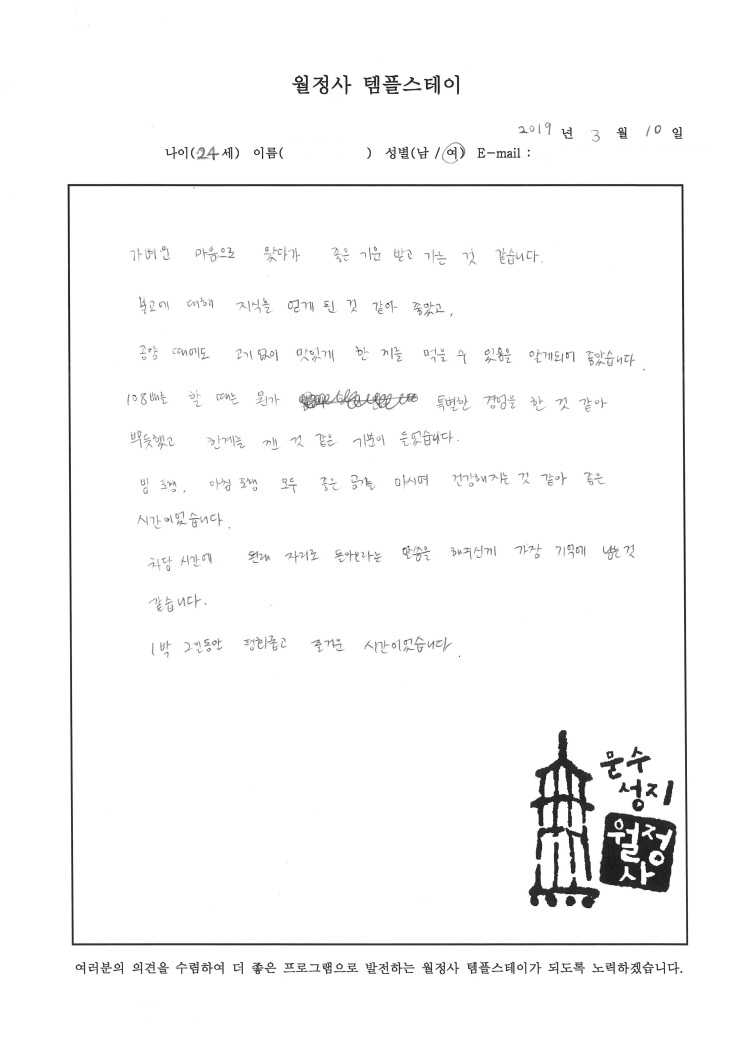 월정사 템플스테이
2019 년 3 월 10 일
나이(24세) 이름( ) 성별(남 / 여) E-mail :
가벼운 마음으로 왔다가 좋은 기운 받고 가는 것 같습니다.
불교에 대해 지식을 얻게 된 것 같아 좋았고,
공양 때에도 고기 없이 맛있게 한 끼를 먹을 수 있음을 알게되어 좋았습니다.
108배를 할 때는 뭔가 특별한 경험을 한 것 같아
뿌듯했고 한계를 깬 것 같은 기분이 들었습니다.
밤 포행, 아침 포행 모두 좋은 공기를 마시며 건강해지는 것 같아 좋은
시간이었습니다.
차담 시간에 원래 자리로 돌아오라는 말씀을 해주신게 가장 기억에 남는것
같습니다.
1박 2일동안 평화롭고 즐거운 시간이었습니다.
문수
성지
월정
사
여러분의 의견을 수렴하여 더 좋은 프로그램으로 발전하는 월정사 템플스테이가 되도록 노력하겠습니다.